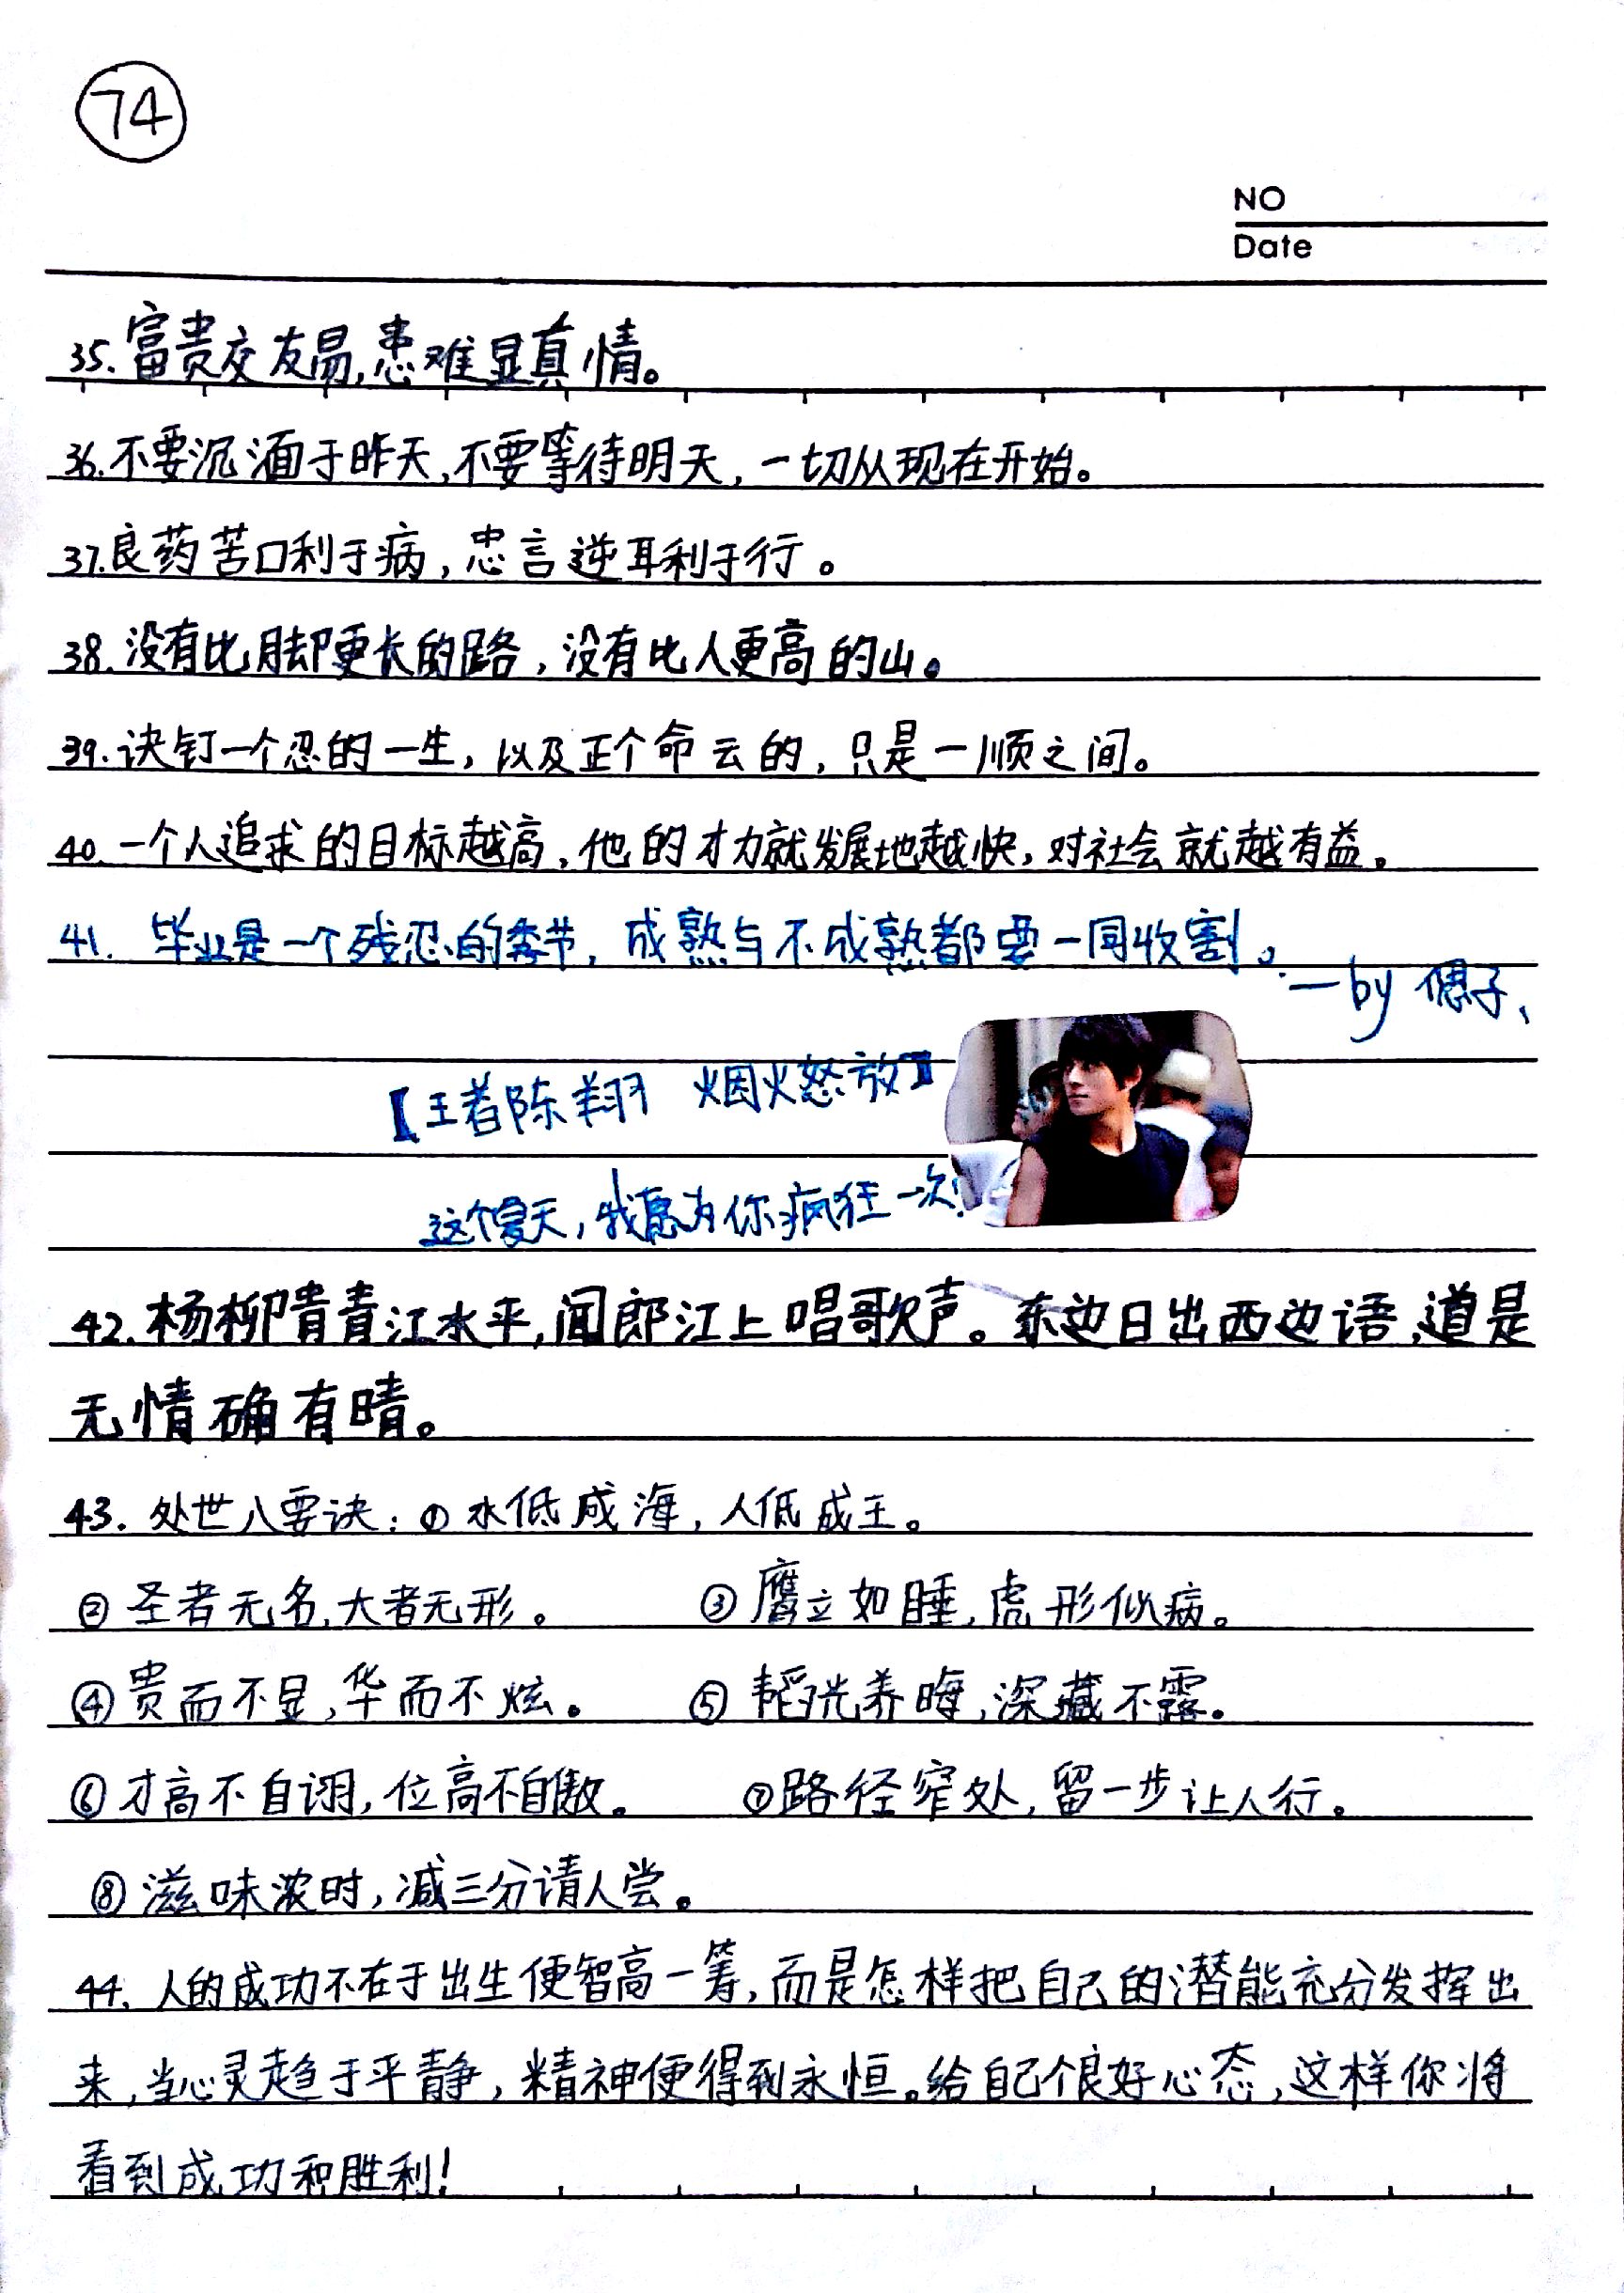 74
NO
Date
35.富贵交友易,患难显真情。
36.不要沉湎于昨天,不要等待明天,一切从现在开始。
37.良药苦口利于病,忠言逆耳利于行。
38.没有比脚更长的路,没有比人更高的山。
39.诀钉一个忍的一生,以及正个命云的,只是一顺之间。
40.一个人追求的目标越高,他的才力就发展地越快,对社会就越有益。
41. 毕业是一个残忍的季节,成熟与不成熟都要一同收割。
—by 偲子、
【王者陈翔 烟火怒放】
这个夏天,我愿为你疯狂一次!
42.杨柳青青江水平,闻郎江上唱歌声。东边日出西边语,道是
无情确有晴。
43. 处世八要诀:①水低成海,人低成王。
②圣者无名,大者无形。 ③鹰立如睡,虎形似病。
④贵而不显,华而不炫。 ⑤韬光养晦,深藏不露。
⑥才高不自诩,位高不自傲。 ⑦路径窄处,留一步让人行。
⑧滋味浓时,减三分请人尝。
44. 人的成功不在于出生便智高一筹,而是怎样把自己的潜能充分发挥出
来,当心灵趋于平静,精神便得到永恒。给自己个良好心态,这样你将
看到成功和胜利!